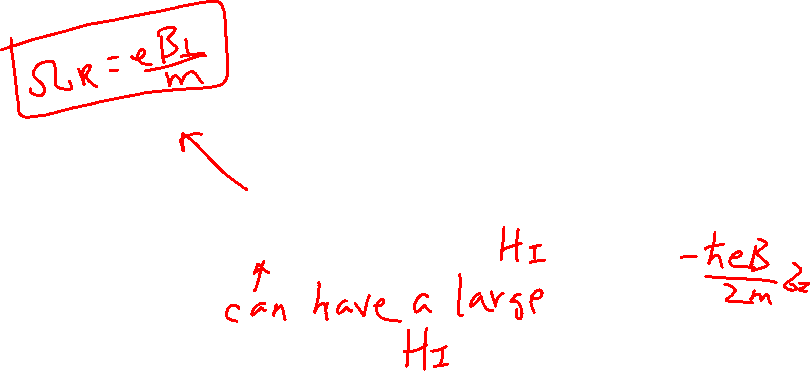 Ω_R = eB_⊥/m
H_I
-ħeB/2m σ̂_z
can have a large
H_I